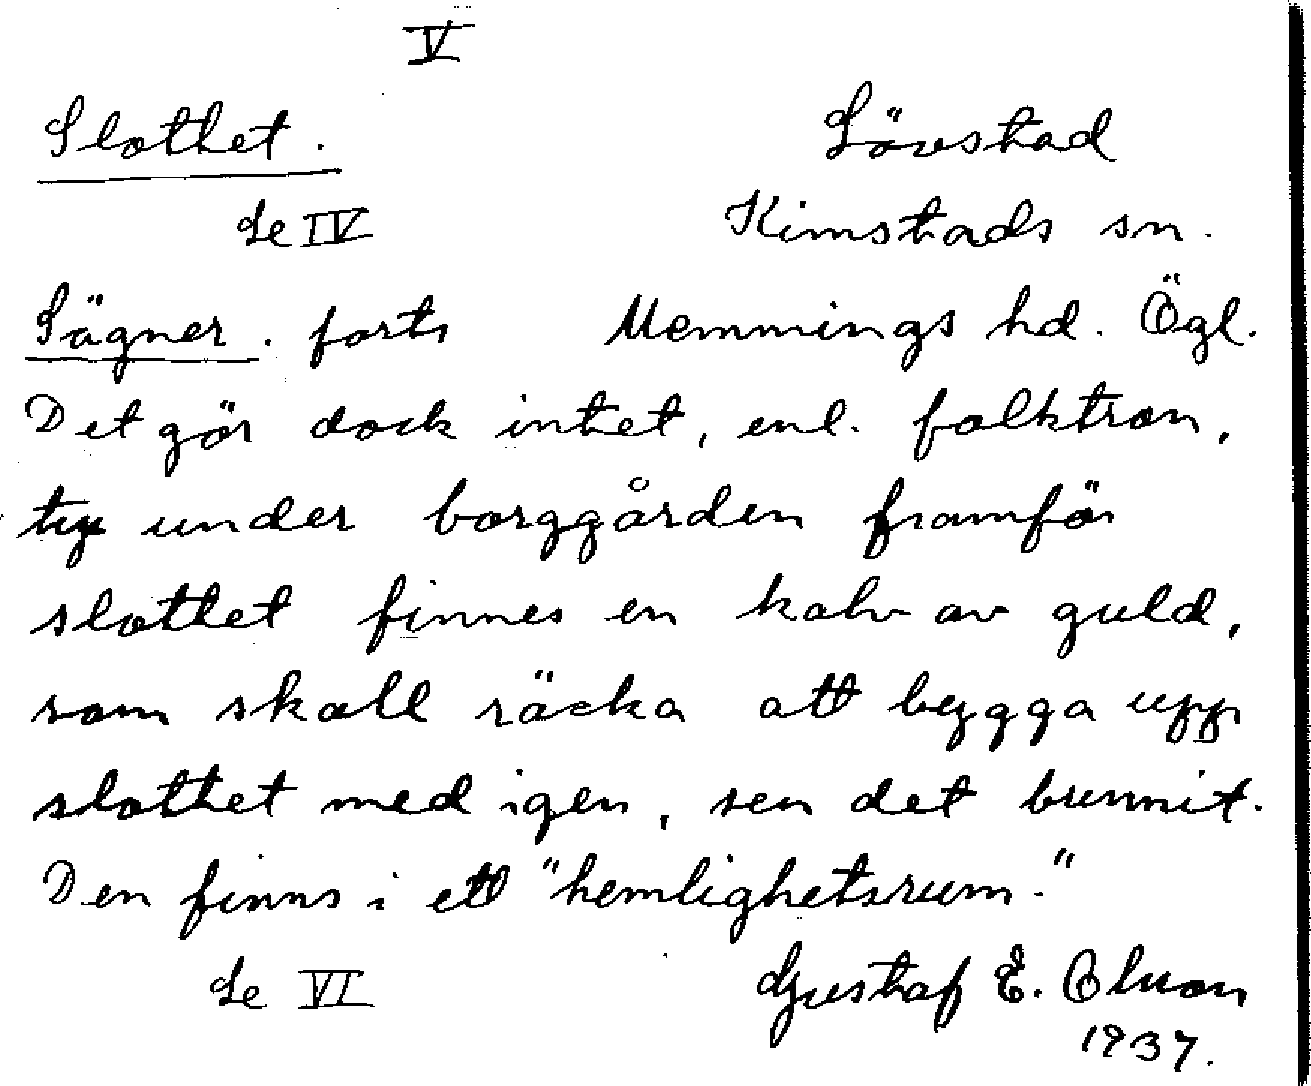 V
Slottet. Lövstad
Se IV Kimstads sn.
Sägner. forts Memmings hd. Ögl.
Det gör dock intet, enl. folktron,
ty under borggården framför
slottet finnes en kalv av guld,
som skall räcka att bygga upp
slottet med igen, sen det brunnit.
Den finns i ett "hemlighetsrum."
Se VI Gustaf E. Olsson
1937.